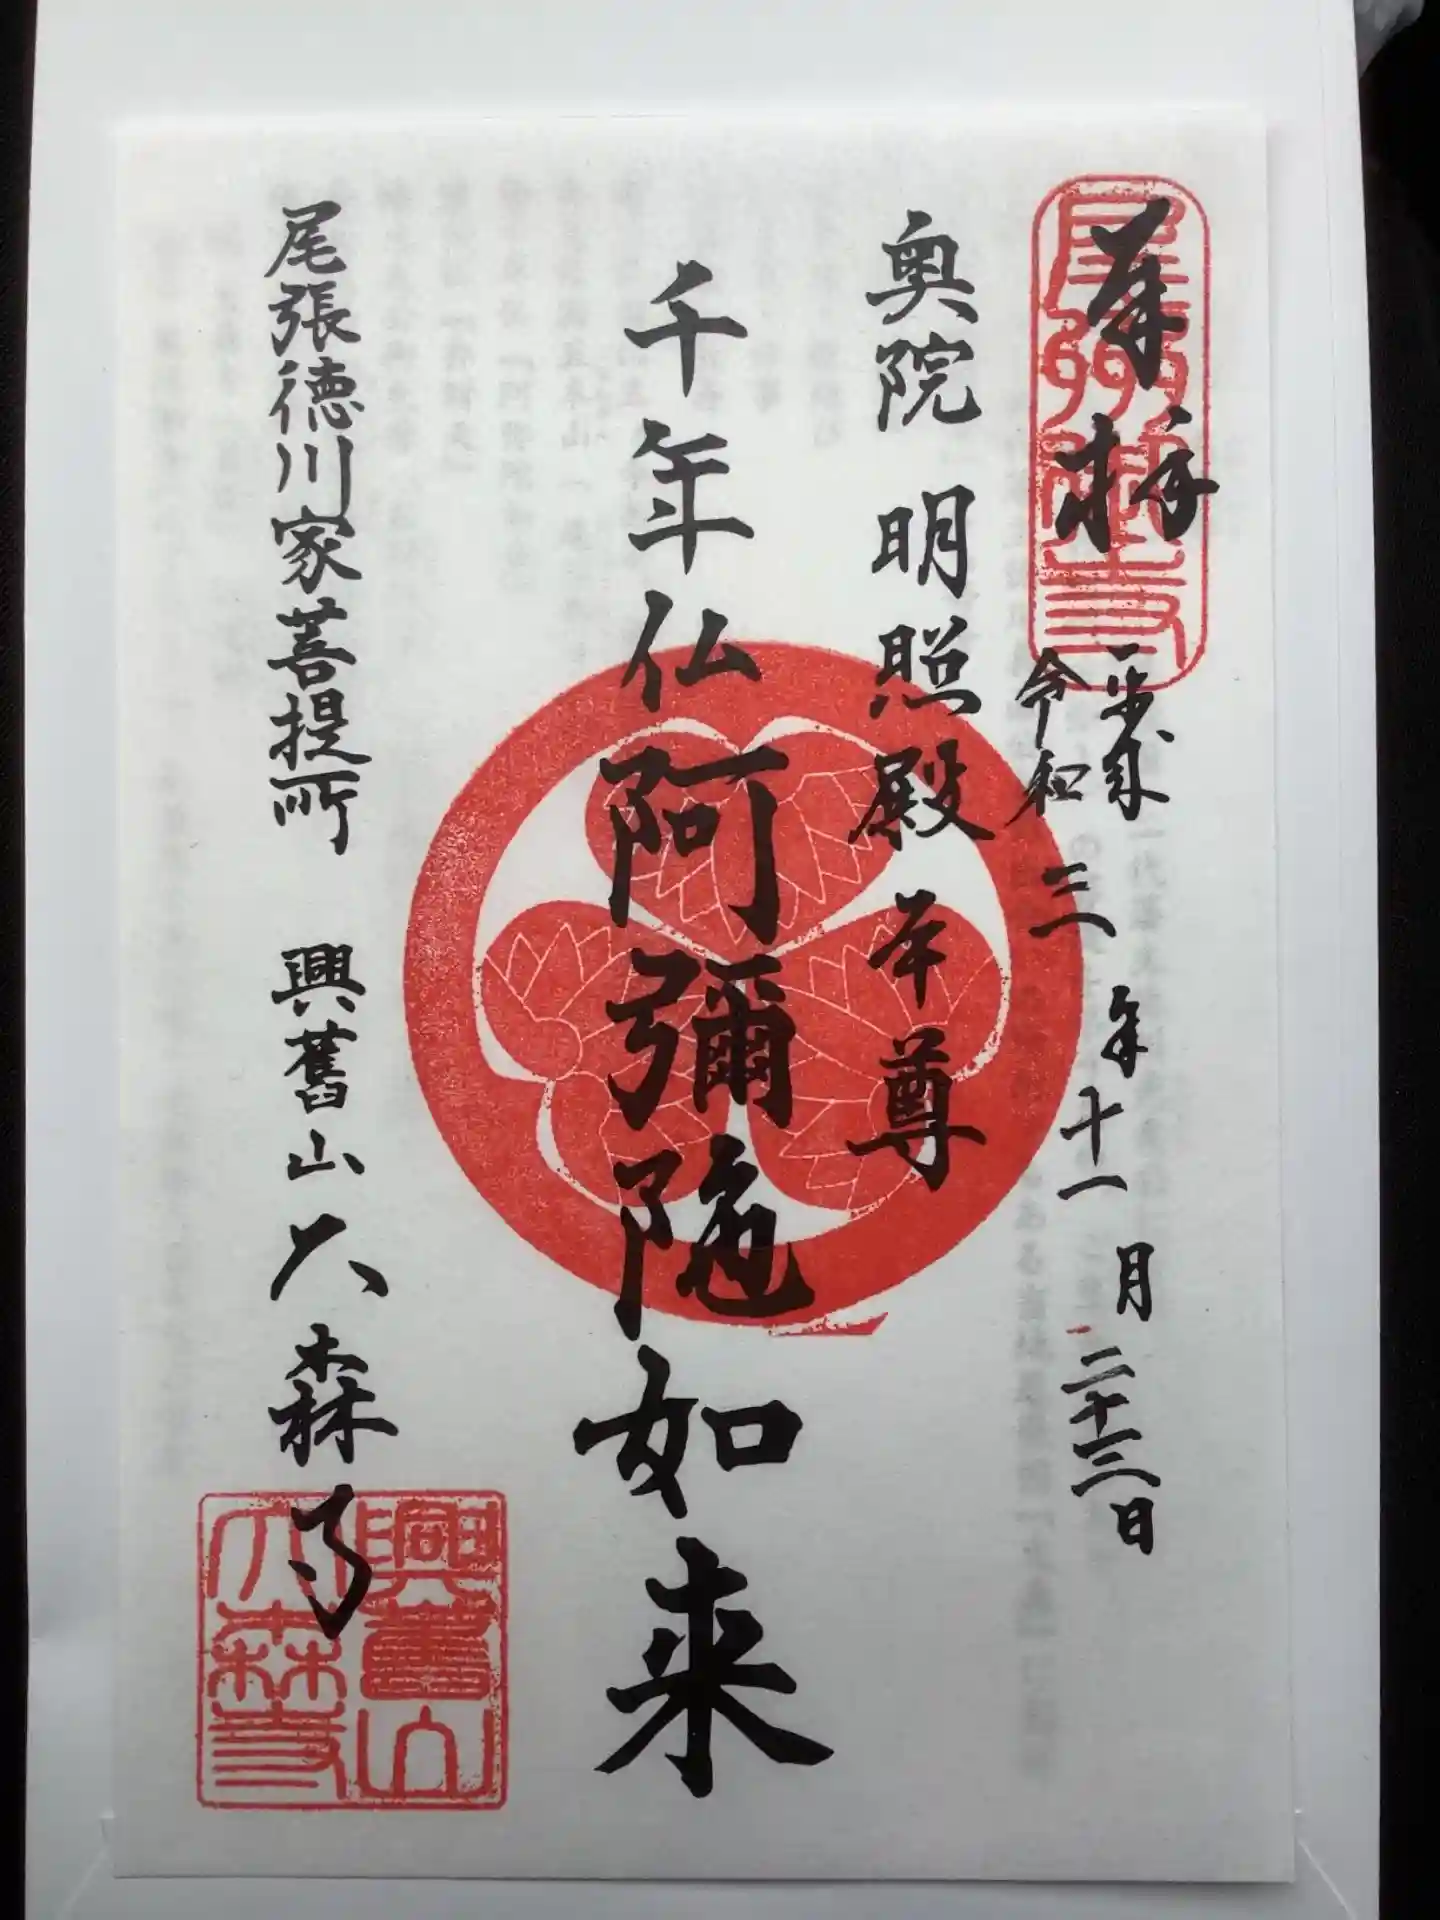 奉拝
令和三年十一月二十三日
奥院 明照殿 本尊
千年仏阿彌陁如来
尾張徳川家菩提所 興舊山 大森寺
興舊山
大森寺